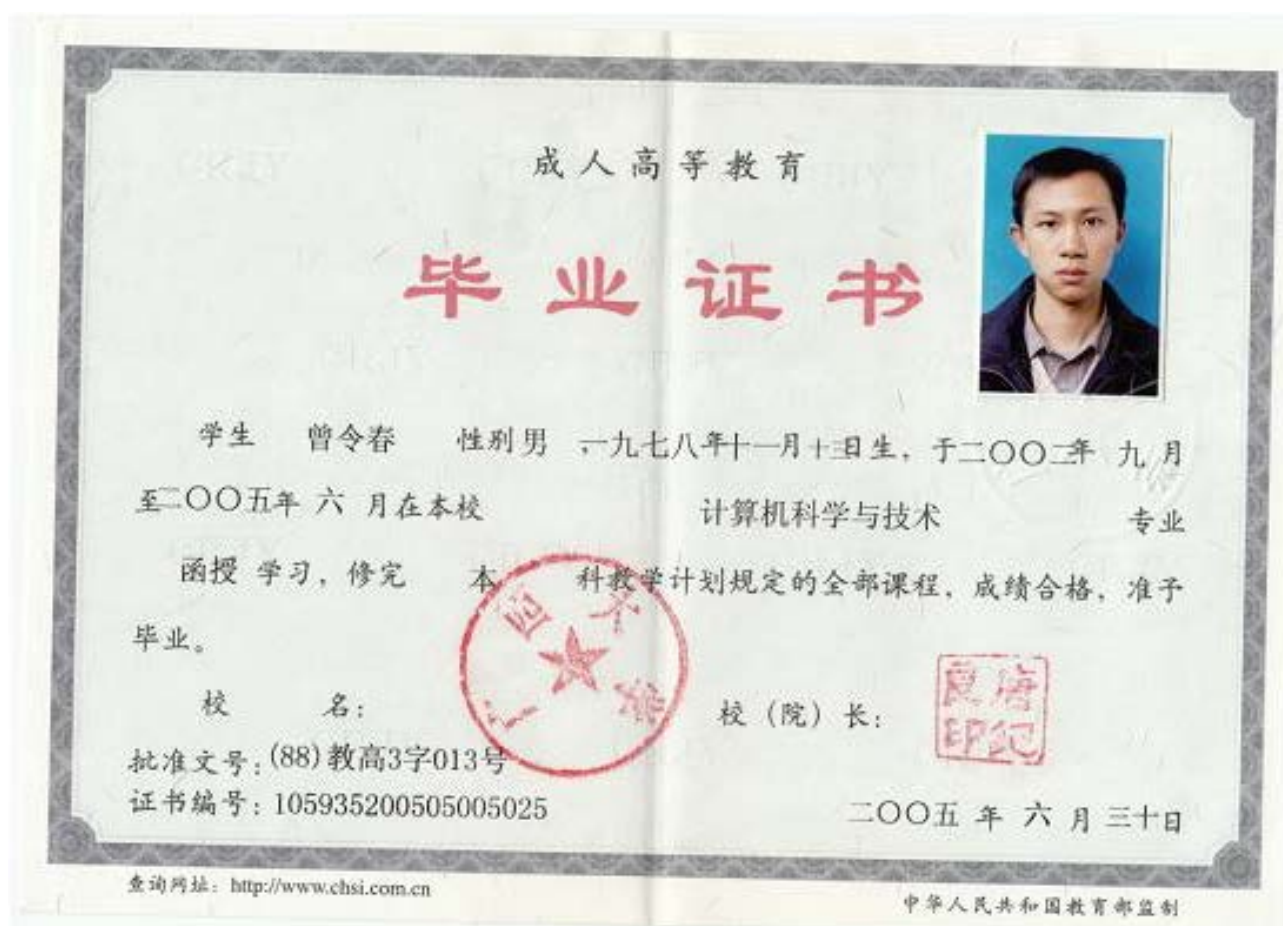 成人高等教育
毕业证书
学生 曾令春 性别 男 ,一九七八年十一月十三日生,于二〇〇二年 九 月
至二〇〇五年 六 月在本校 计算机科学与技术 专业
函授 学习,修完 本 科教学计划规定的全部课程,成绩合格,准予
毕业。
校 名: 校(院)长:
广西大学
唐纪良印
批准文号:(88)教高3字013号
证书编号:105935200505005025
二〇〇五 年 六 月 三十日
查询网址:http://www.chsi.com.cn
中华人民共和国教育部监制